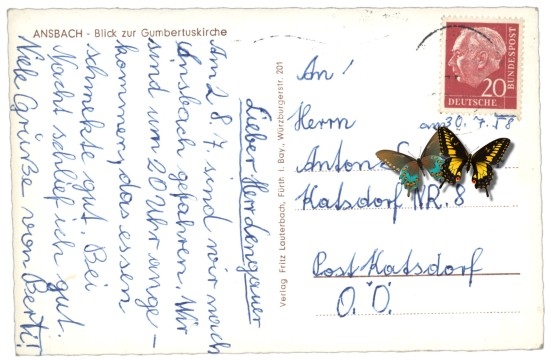 ANSBACH - Blick zur Gumbertuskirche
Lieber Herdengauer
Am 28.7. sind wir nach
Ansbach gefahren. Wir
sind um 20 Uhr ange-
kommen, das essen
schmekte gut. Bei
Nacht schlief ich gut.
Viele Grüße von Berti!
Verlag Fritz Lauterbach, Fürth i. Bay., Würzburgerstr. 201
20
DEUTSCHE
BUNDESPOST
An!
Herrn
am 30.7.58
Anton
Katsdorf NR. 8
Post Katsdorf
O.Ö.